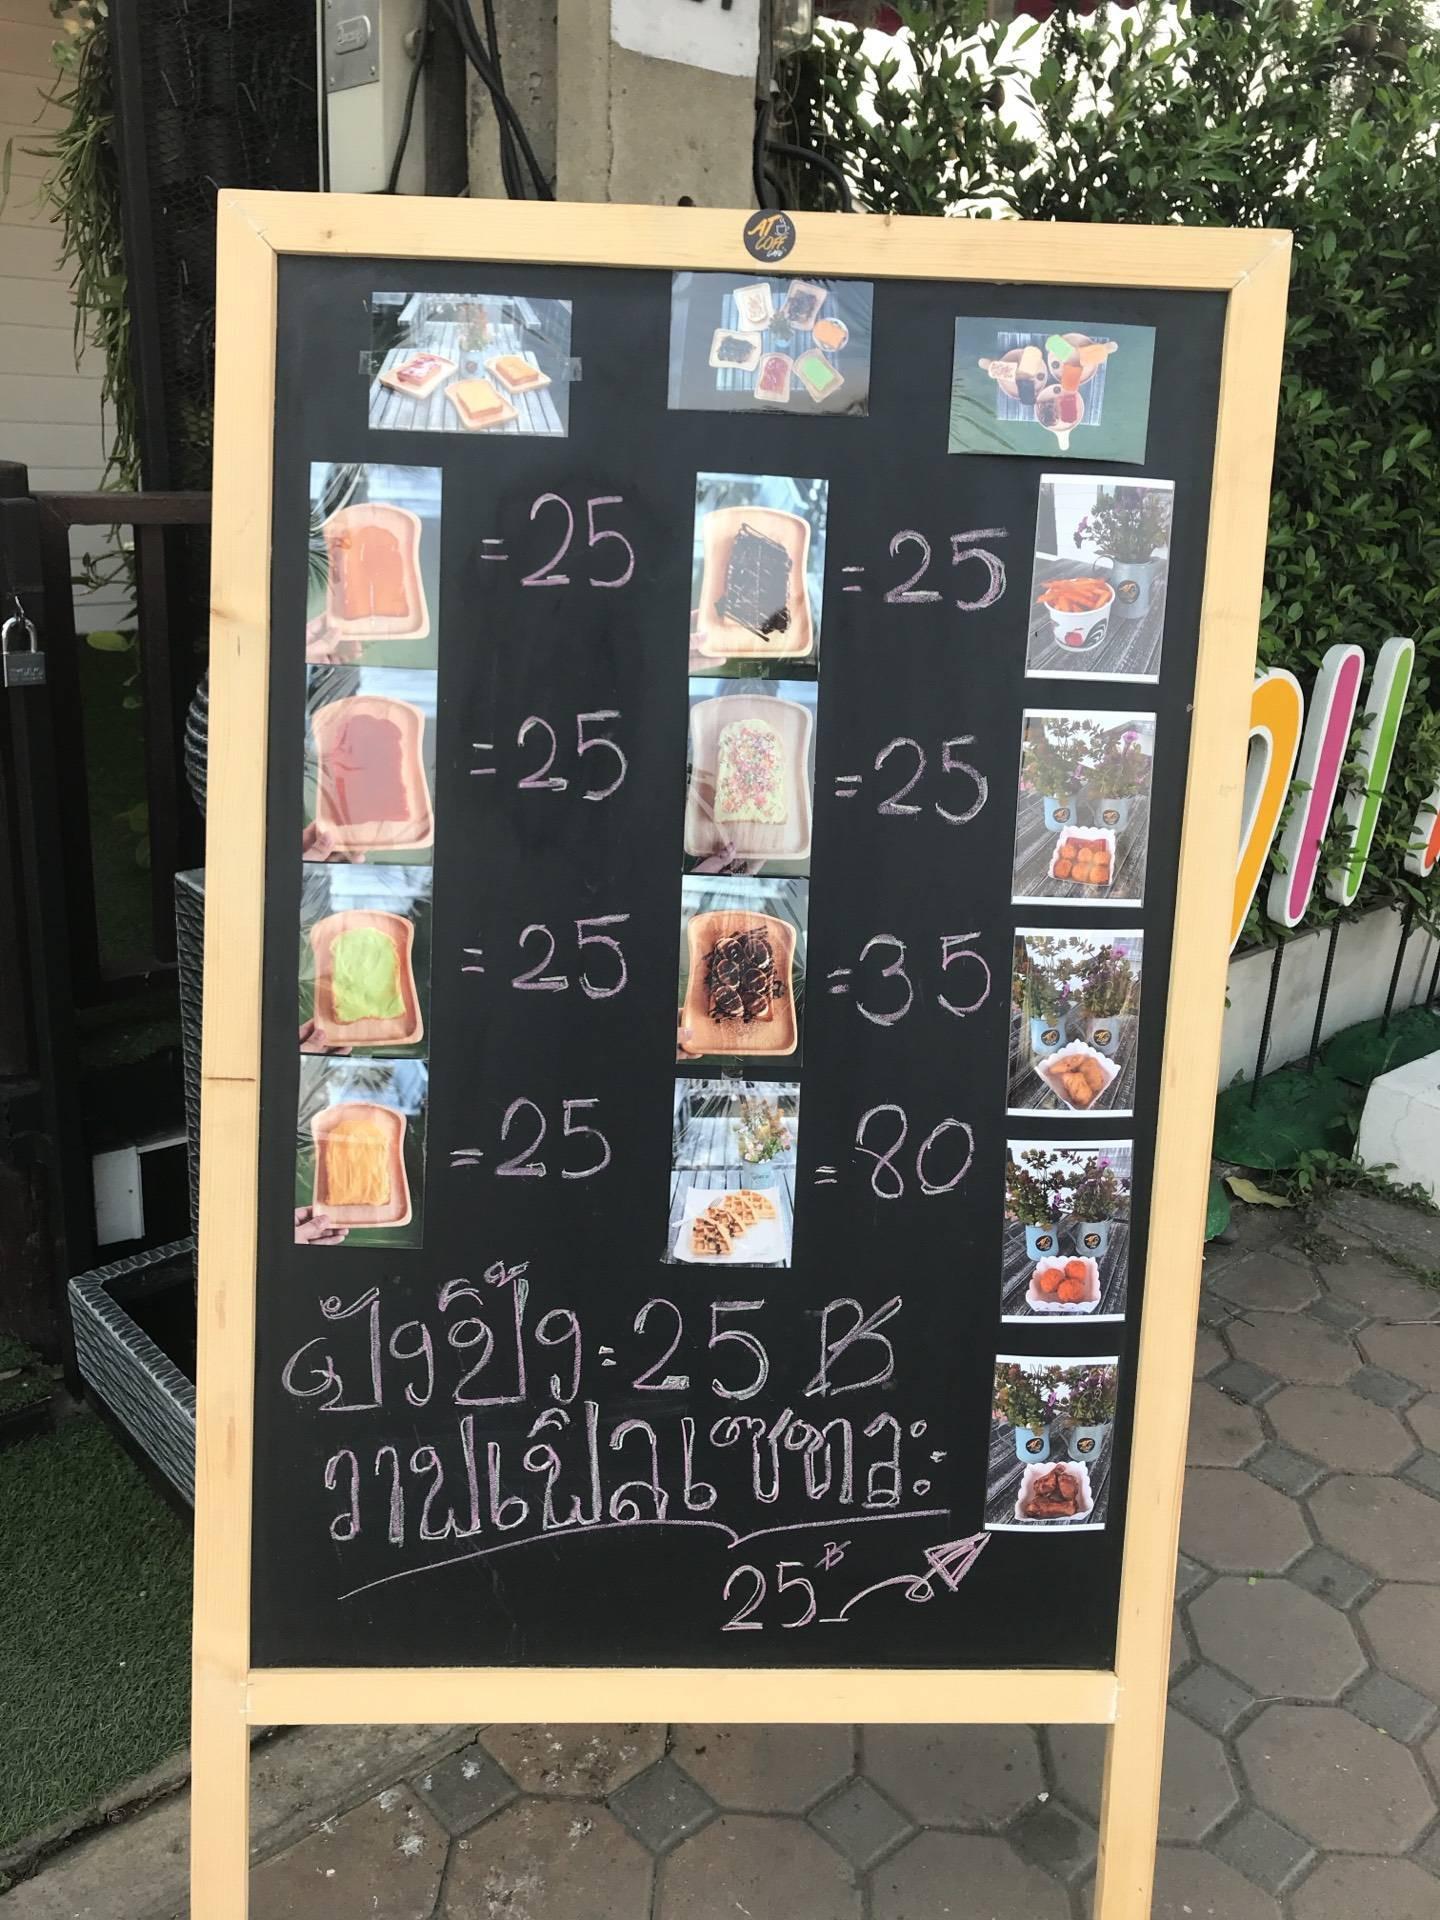 AT
COFF.
CAFE
= 25 = 25
= 25 = 25
= 25 = 35
= 25 = 80
ปังปิ้ง = 25 B
วาฟเฟิลเซทละ
25 B